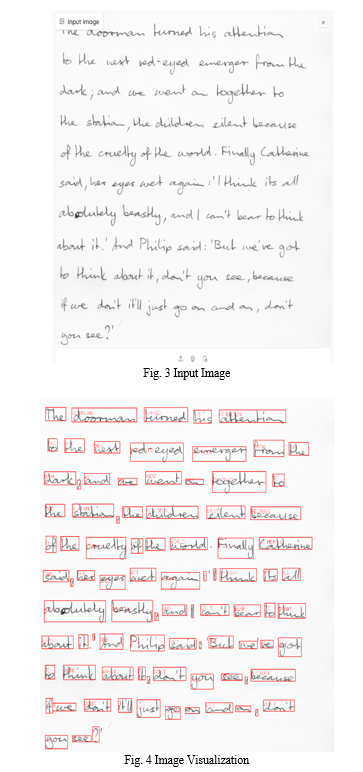 Input image x
The doorman turned his attention
to the next red-eyed emerger from the
dark; and we went on together to
the station, the children silent because
of the cruelty of the world. Finally Catherine
said, her eyes wet again: 'I think its all
absolutely beastly, and I can't bear to think
about it.' And Philip said: 'But we've got
to think about it, don't you see, because
if we don't it'll just go on and on, don't
you see?'
Fig. 3 Input Image
The doorman turned his attention
to the next red-eyed emerger from the
dark; and we went on together to
the station, the children silent because
of the cruelty of the world. Finally Catherine
said, her eyes wet again: 'I think its all
absolutely beastly, and I can't bear to think
about it.' And Philip said: 'But we've got
to think about it, don't you see, because
if we don't it'll just go on and on, don't
you see?'
Fig. 4 Image Visualization